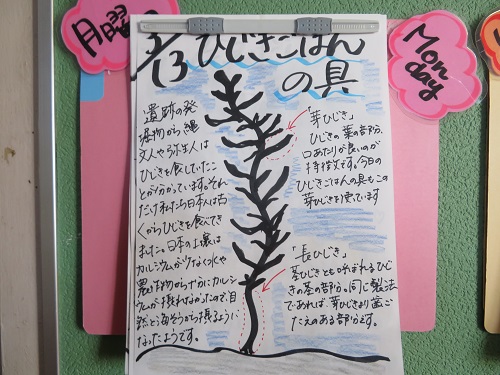 月曜
3/13 ひじきごはん
の具
Mon
day
遺跡の発
掘物から縄
文人や弥生人は
ひじきを食していたこ
とが分かっています。それ
だけ私たち日本人は古
くからひじきを食べてき
ました。日本の土壌は
カルシウムが少なく水や
農作物からだけではカルシ
ウムが摂れなかったので、自
然と海そうから摂るように
なったようです。
「芽ひじき」
ひじきの葉の部分。
口あたりが良いのが
特徴です。今日の
ひじきごはんの具もこの
芽ひじきを使っています
「長ひじき」
茎ひじきとも呼ばれるひじ
きの茎の部分。同じ製法
であれば、芽ひじきより歯ご
たえのある部分です。